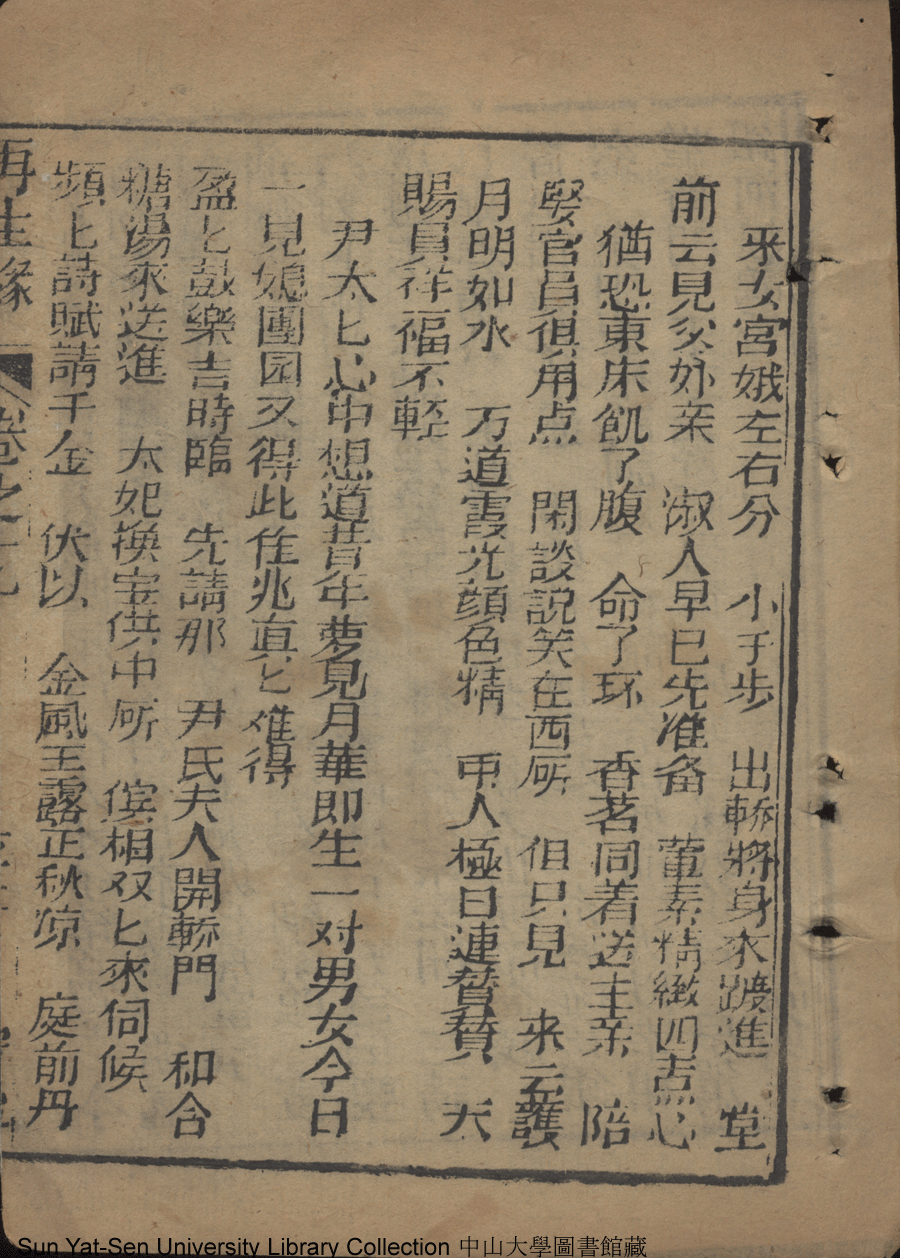 釆女宮娥左右分　小于步　出轎將身來踱進　堂
前云見父外亲　淑人早已先准备　葷素精緻四点心
猶恐東床飢了腹　命了环　香茗同着送主亲　陪
娶官員俱用点　閑談説笑在西厛　但只見　来云護
月明如水　万道霞光顔色精　甲人極日連聲賛　天
賜員祥福不輕
尹太匕心中想道昔年夢見月華即生一对男女今日
一見媳團园又得此佳兆真匕难得
盈匕鼓樂吉時臨　先請那　尹氏夫人開轎門　和合
糖湯來送進　太妃換宝供中厛　儐相双匕來伺候
頻匕詩賦請千金　伏以　金風玉露正秋凉　庭前丹
再生緣　卷之十九
Sun Yat-Sen University Library Collection 中山大學圖書館藏